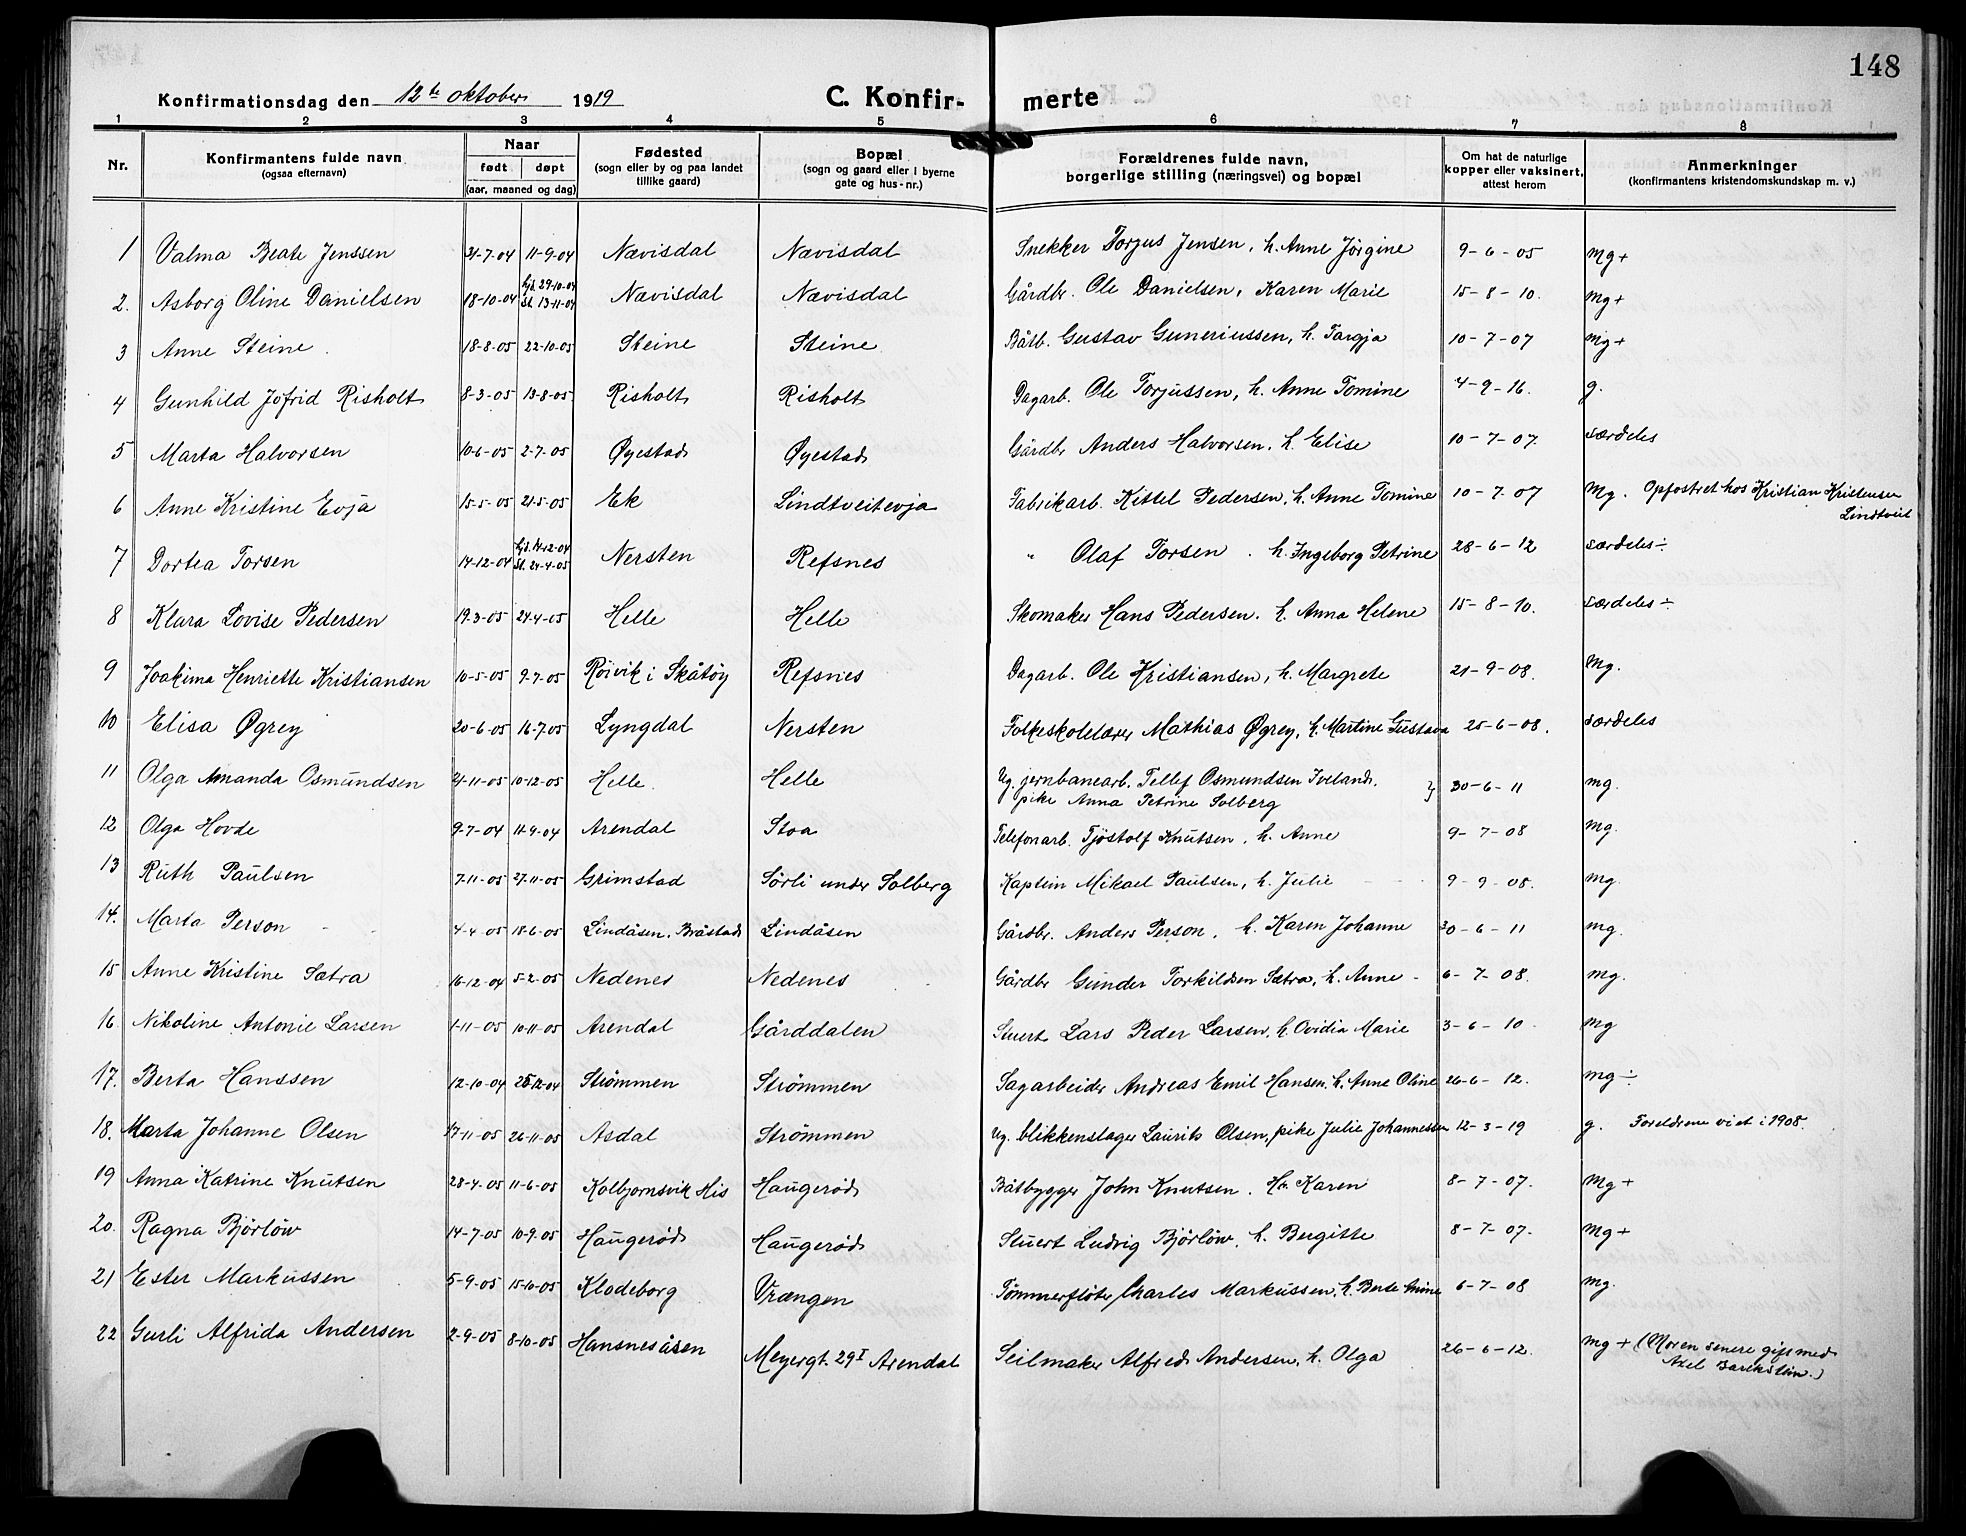 148
Konfirmationsdag den 12te oktober 1919 C. Konfirmerte
1 2 3 4 5 6 7 8
Nr. Konfirmantens fulde navn (ogsaa efternavn) Naar født døpt (aar, maaned og dag) Fødested (sogn eller by og paa landet tillike gaard) Bopæl (sogn og gaard eller i byerne gate og hus-nr.) Forældrenes fulde navn, borgerlige stilling (næringsvei) og bopæl Om hat de naturlige kopper eller vaksinert, attest herom Anmerkninger (konfirmantens kristendomskundskap m. v.)
1 Valma Beate Jenssen 31-7-04 11-9-04 Nævisdal Nævisdal Snekker Torjus Jensen, h. Anne Jørgine 9-6-05 Mg+
2. Asborg Oline Danielsen 18-10-04 hjd. 29-10-04 st. 13-11-04 Nævisdal Nævisdal Gårdbr. Ole Danielsen, Karen Marie 15-8-10. Mg+
3 Anne Steine 18-8-05 22-10-05 Steine Steine Båtb. Gustav Guneriussen, h. Targja 10-7-07 Mg+
4 Gunhild Jofrid Risholt 8-3-05 13-8-05 Risholt Risholt Dagarb. Ole Torjussen, h. Anne Tomine 4-9-16. g.
5 Marta Halvorsen 10-6-05 2-7-05 Øyestad Øyestad Gårdbr Anders Halvorsen, h. Elise 10-7-07. særdeles
6 Anne Kristine Evja 15-5-05 21-5-05 Ek Lindtveitevja Fabrikarb. Kittel Pedersen, h. Anne Tomine 10-7-07 Mg. Opfostret hos Kristian Kristensen Lindtveit
7 Dortea Torsen 14-12-04 hjd. 14-12-04 st. 24-4-05 Nersten Refsnes " Olaf Torsen. h. Ingeborg Petrine 28-6-12 særdeles÷
8 Klara Lovise Pedersen 19-3-05 24-4-05 Helle Helle Skomaker Hans Pedersen. h. Anna Helene 15-8-10. særdeles÷
9 Joakima Henriette Kristiansen 10-5-05 9-7-05 Røivik i Skåtøy Refsnes Dagarb. Ole Kristiansen, h. Margrete 21-9-08. Mg.
10 Elisa Øgrey 20-6-05 16-7-05 Lyngdal Nersten Folkeskolelærer Mathias Øgrey, h. Martine Gustava 25-6-08. særdeles
11 Olga Amanda Osmundsen 21-11-05 10-12-05 Helle. Helle Ug. jernbanearb. Tellef Osmundsen Iveland,
pike Anna Petrine Solberg } 30-6-11 mg.
12 Olga Hovde 9-7-04 11-9-04 Arendal Stoa Telefonarb. Tjøstolf Knutsen, h. Anne 9-7-08 Mg.
13 Ruth Paulsen 7-11-05 27-11-05 Grimstad Sørli under Solberg Kaptein Mikael Paulsen, h. Julie 9-9-08. mg.
14. Marta Person 4-4-05 18-6-05 Lindåsen, Bråstad Lindåsen Gårdbr. Anders Person, h. Karen Johanne 30-6-11 mg.
15 Anne Kristine Sætra 16-12-04 5-2-05 Nedenes Nedenes Gårdbr Gunder Torkildsen Sætra, h. Anne - 6-7-08. mg.
16 Nikoline Antonie Larsen 1-11-05 10-11-05 Arendal Gårddalen Stuert Lars Peder Larsen, h. Ovidia Marie 3-6-10 mg
17. Berta Hanssen 12-10-04 12-04 Strømmen Strømmen Sagarbeider Andreas Emil Hansen, h. Anne Oline 26-6-12. mg÷
18. Marta Johanne Olsen 17-11-05 26-11-05 Asdal Strømmen Ug. blikkenslager Laurits Olsen, pike Julie Johannessen 12-3-19 g. Foreldrene viet i 1908.
19 Anna Katrine Knutsen 28-4-05 11-6-05 Kolbjørnsvik His Haugerød Båtbygger John Knutsen. H. Karen 8-7-07. Mg+
20. Ragna Bjørløw 14-7-05 10-9-05 Haugerød Haugerød Stuert Ludvig Bjørløw, h. Bergitte 8-7-07. Mg+
21 Ester Markussen 5-9-05 15-10-05 Klodeborg Vrængen Tømmerfløter Charles Markussen, h. Berte Anine 6-7-08 Mg.
22 Gurli Alfrida Andersen 2-9-05 8-10-05 Hansnesåsen Meyergt. 29I Arendal Seilmaker Alfred Andersen, h. Olga 26-6-12. Mg+ (Moren senere gift med Axel .)